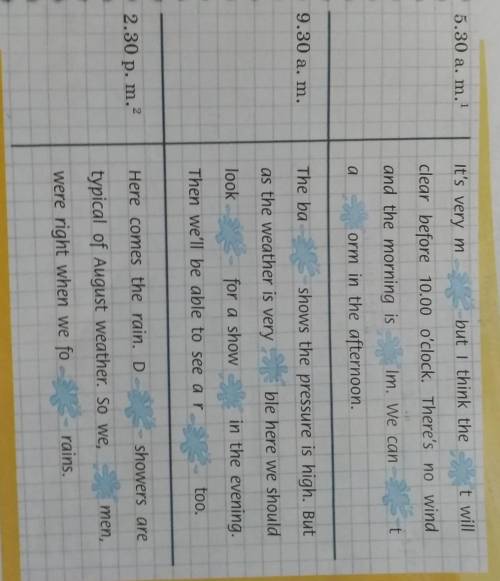 5.30 a. m.¹ It's very m but I think the t will
clear before 10.00 o'clock. There's no wind
and the morning is lm. We can t
a orm in the afternoon.
9.30 a. m. The ba shows the pressure is high. But
as the weather is very ble here we should
look for a show in the evening.
Then we'll be able to see a r too.
2.30 p. m.² Here comes the rain. D showers are
typical of August weather. So we, men,
were right when we fo rains.